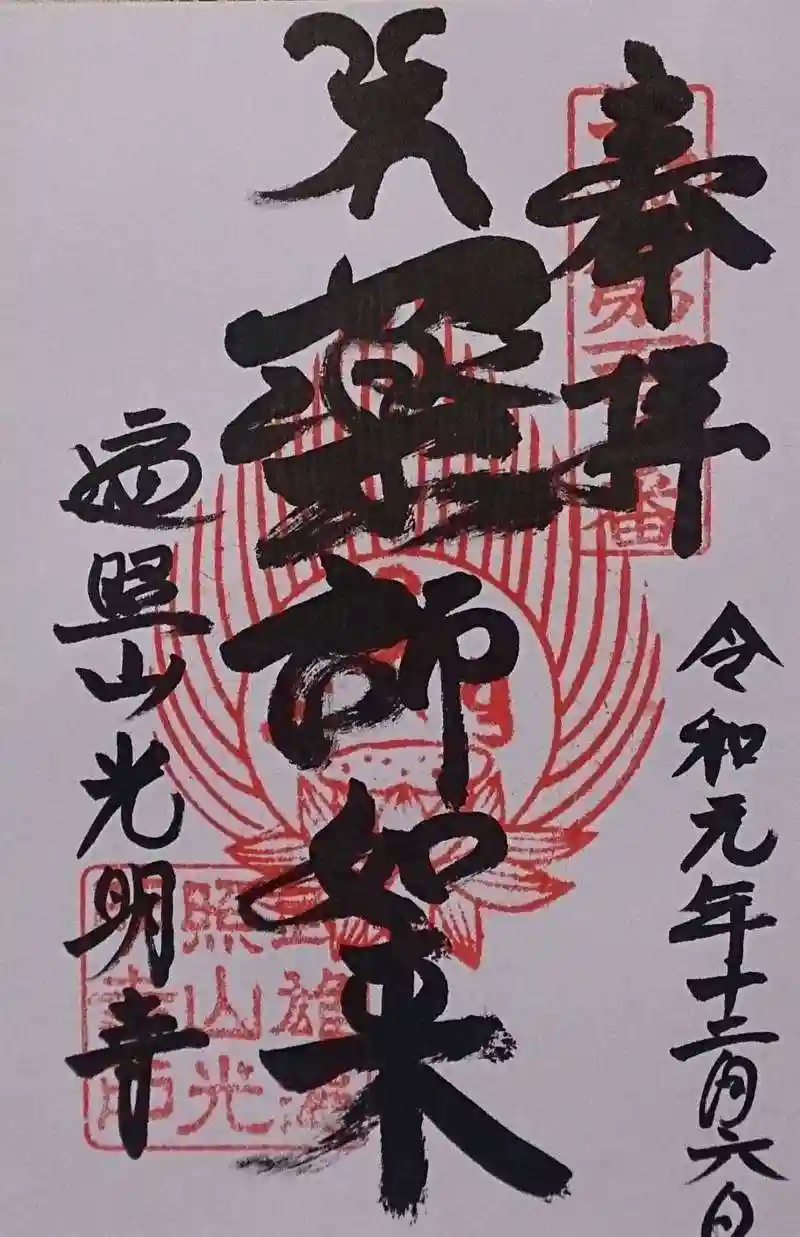 奉拝
令和元年十二月六日
薬師如来
遍照山光明寺
照山光
明寺印